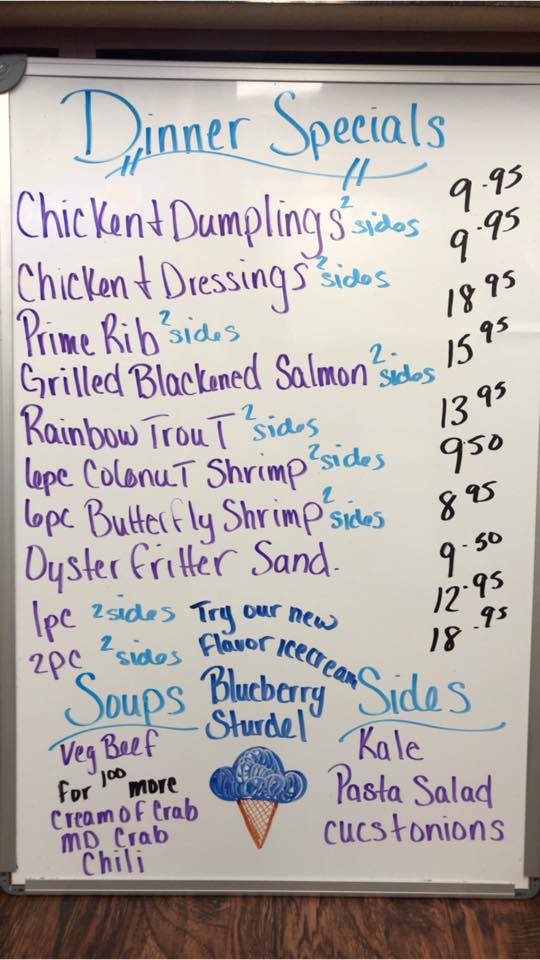 Dinner Specials
Chicken + Dumplings 2 sides 9.95
Chicken + Dressings 2 sides 9.95
Prime Rib 2 sides 18 95
Grilled Blackened Salmon 2 sides 15 95
Rainbow Trout 2 sides 13 95
6pc Colonut Shrimp 2 sides 9 50
6pc Butterfly Shrimp 2 sides 8 95
Oyster Fritter Sand. 9.50
1pc 2 sides 12.95
2pc 2 sides 18.95
Try our new
Flavor icecream
Blueberry
Sturdel
Soups
Veg Beef
for 1 00 more
Cream of Crab
MD Crab
Chili
Sides
Kale
Pasta Salad
cucs + onions